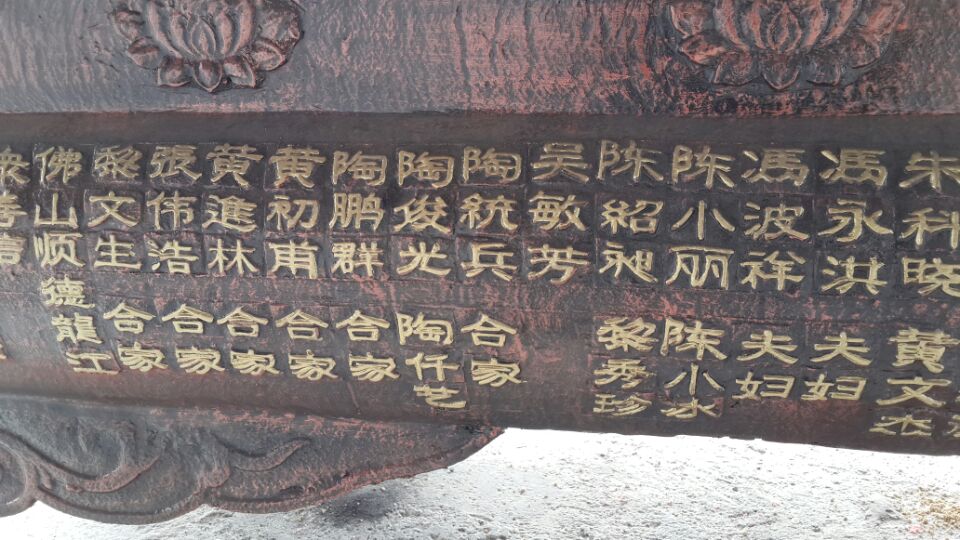 朱科晓 黄文杰
馮永洪 夫妇
馮波祥 夫妇
陈小丽 陈小冰
陈紹昶 黎秀珍
吴敏芳
陶統兵 合家
陶俊光 陶仟艺
陶鹏群 合家
黄初甫 合家
黄進林 合家
張伟浩 合家
黎文生 合家
佛山顺德龍江
善信